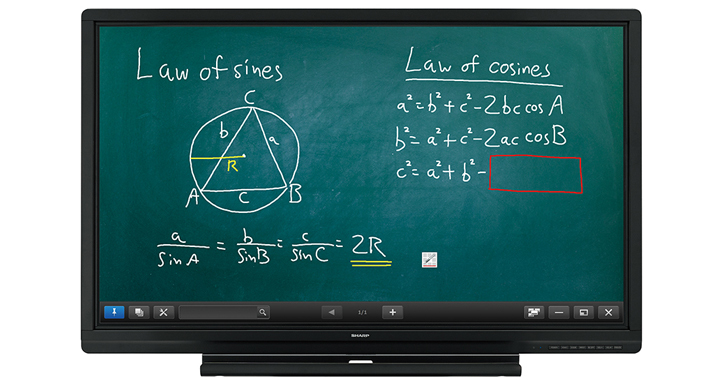 Law of sines
C
b
a
R
A
c
B
a/sinA = b/sinB = c/sinC = 2R
Law of cosines
a² = b² + c² - 2bc cosA
b² = a² + c² - 2ac cosB
c² = a² + b² -
1/1
SHARP